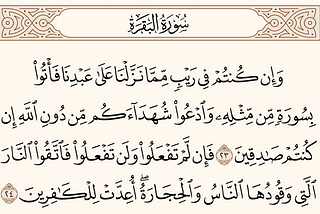 سُورَةُ البَقَرَةِ
وَإِن كُنتُمْ فِي رَيْبٍ مِّمَّا نَزَّلْنَا عَلَىٰ عَبْدِنَا فَأْتُوا۟
بِسُورَةٍ مِّن مِّثْلِهِۦ وَٱدْعُوا۟ شُهَدَآءَكُم مِّن دُونِ ٱللَّهِ إِن
كُنتُمْ صَٰدِقِينَ ٢٣ فَإِن لَّمْ تَفْعَلُوا۟ وَلَن تَفْعَلُوا۟ فَٱتَّقُوا۟ ٱلنَّارَ
ٱلَّتِي وَقُودُهَا ٱلنَّاسُ وَٱلْحِجَارَةُۖ أُعِدَّتْ لِلْكَٰفِرِينَ ٢٤